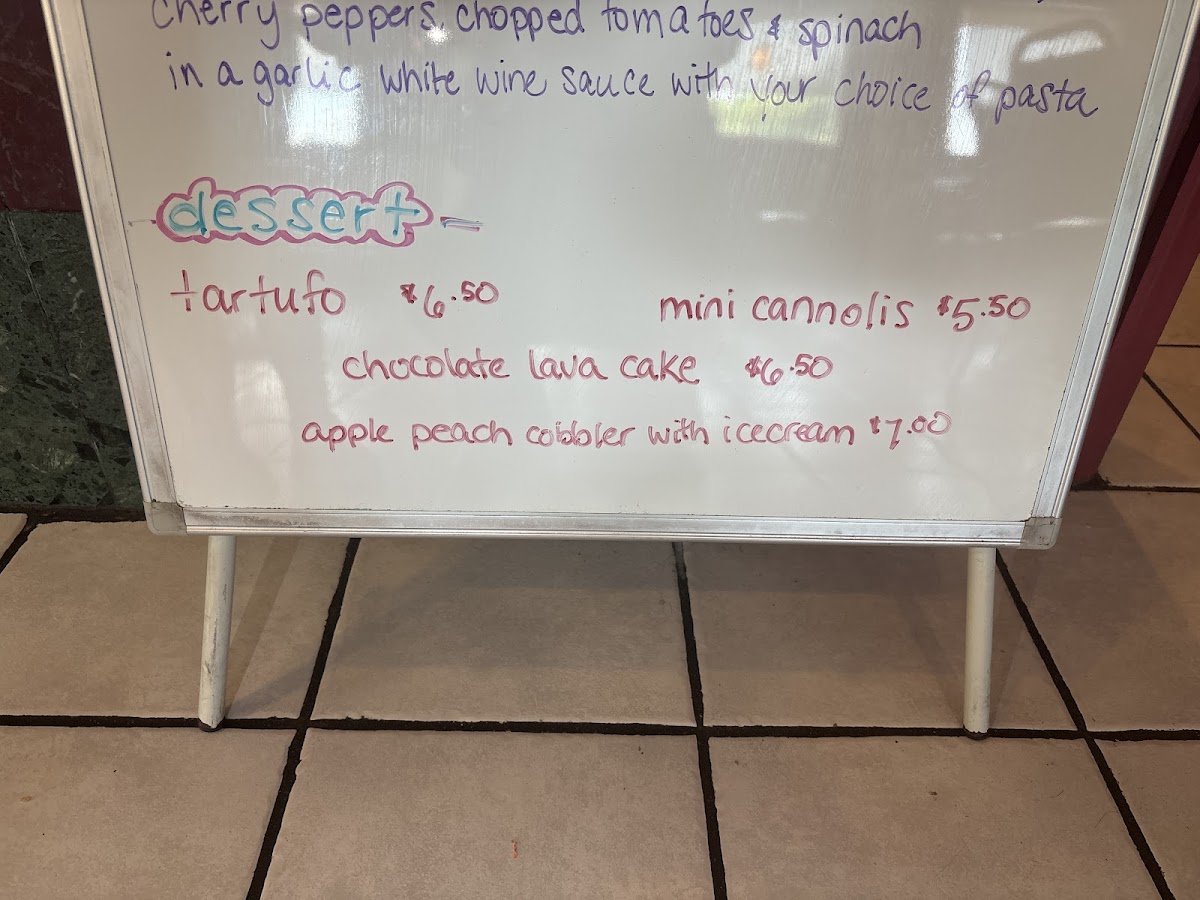 cherry peppers, chopped tomatoes & spinach
in a garlic white wine sauce with your choice of pasta
dessert
tartufo $6.50
mini cannolis $5.50
chocolate lava cake $6.50
apple peach cobbler with icecream $7.00